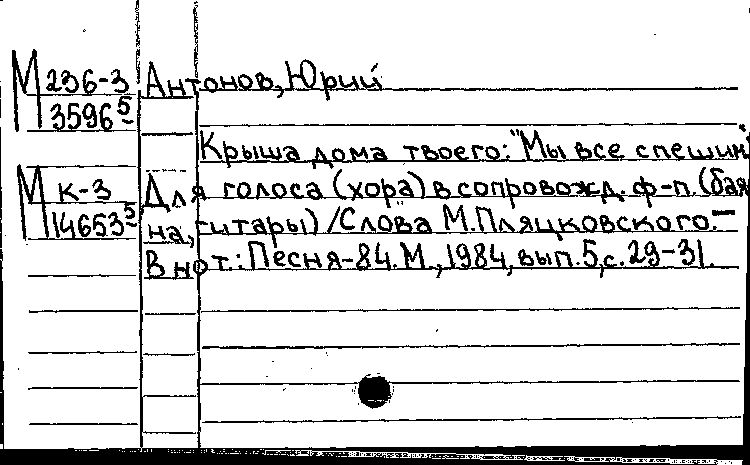 М 236-3 Антонов, Юрий
3596 5
Крыша дома твоего: "Мы все спешим"
М К-3 Для голоса (хора) в сопровожд. ф-п. (бая
14653 5 на, гитары) / Слова М. Пляцковского. –
В нот.: Песня-84. М., 1984, вып. 5, с. 29-31.